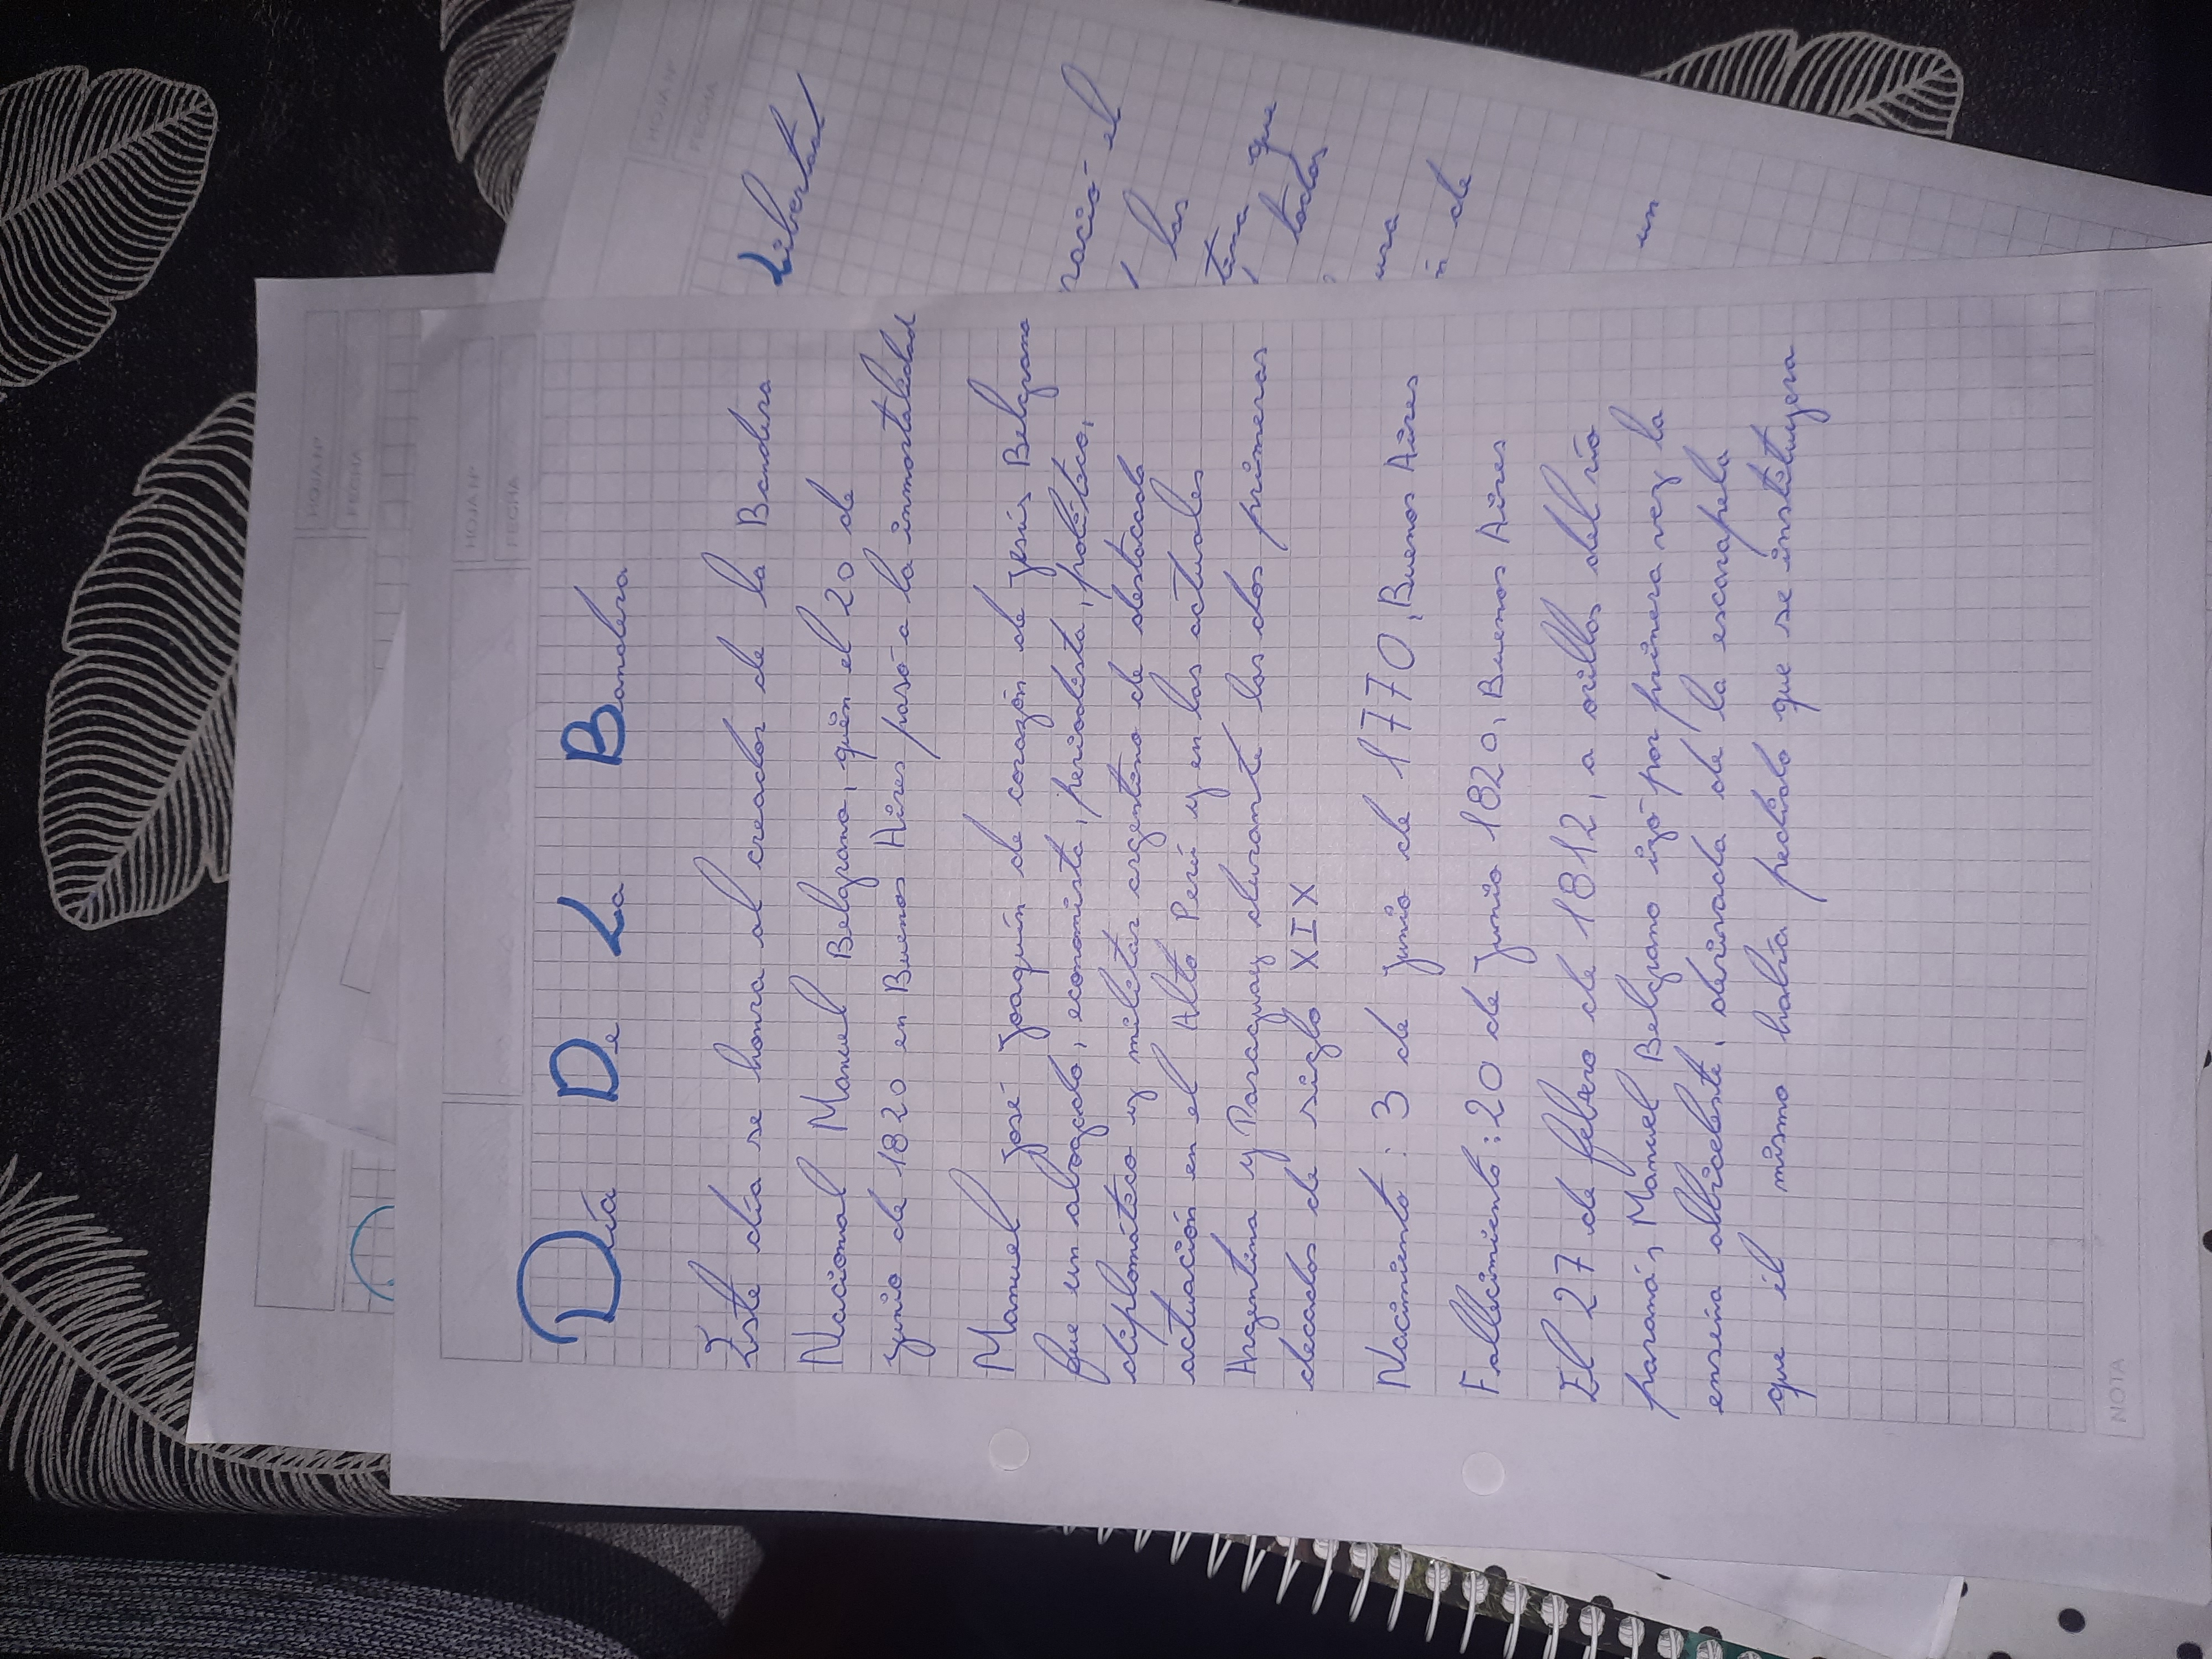 Día De La Bandera
Este día se honra al creador de la Bandera
Nacional Manuel Belgrano, quién el 20 de
junio de 1820 en Buenos Aires pasó a la inmortalidad
Manuel José Joaquín de corazón de Jesús Belgrano
fue un abogado, economista, periodista, político,
diplomático y militar argentino de destacada
actuación en el Alto Perú y en las actuales
Argentina y Paraguay durante las dos primeras
decadas de siglo XIX
Nacimiento: 3 de junio de 1770, Buenos Aires
Fallecimiento: 20 de junio 1820, Buenos Aires
El 27 de febrero de 1812, a orillas del río
paraná, Manuel Belgrano izó por primera vez la
enseña albiceleste, derivada de la escarapela
que él mismo había pedido que se instituyera
NOTA
HOJA Nº
FECHA
HOJA Nº
FECHA
HOJA Nº
FECHA
Libertad
nació el
las
tina que
todos
ura
n de
un